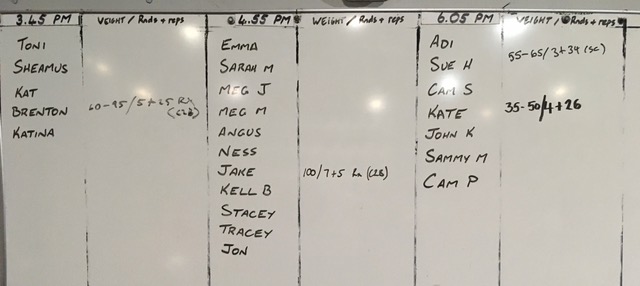 3.45 PM WEIGHT / Rnds + reps 4.55 PM WEIGHT / Rnds + reps 6.05 PM WEIGHT / Rnds + reps
TONI
SHEAMUS
KAT
BRENTON 60-95/5+25 Rx
(C2B)
KATINA
EMMA
SARAH M
MEG J
MEG M
ANGUS
NESS
JAKE 100/7+5 Rx (C2B)
KELL B
STACEY
TRACEY
JON
ADI
SUE H 55-65/3+34 (sc)
CAM S
KATE 35-50/4+26
JOHN K
SAMMY M
CAM P